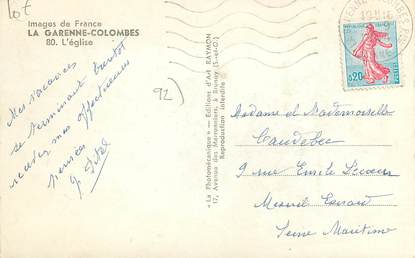 10€
Images de France
LA GARENNE-COLOMBES
80. L'église
92)
Mes vacances
se terminant bientôt
recevez mes affectueuses
pensées
"La Photomécanique" — Editions d'Art RAYMON
17, Avenue des Marronniers, à Brunoy (S.-et-O.)
Reproduction interdite
0,20
POSTES
Madame et Mademoiselle
Caudebec
9 rue Emile
Mesnil Esnard
Seine Maritime